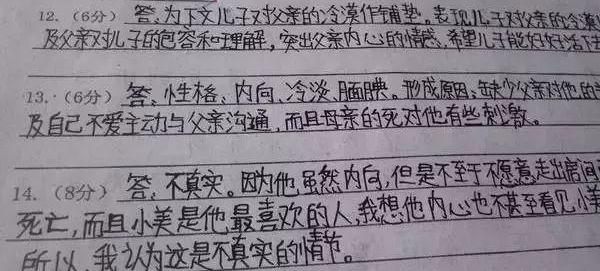 12.（6分）答、为下文儿子对父亲的冷漠作铺垫。表现儿子对父亲的冷漠
及父亲对儿子的包容和理解，突出父亲内心的情感，希望儿子能好好活下去
13.（6分）答、性格、内向、冷淡、腼腆。形成原因、缺少父亲对他的
及自己不爱主动与父亲沟通，而且母亲的死对他有些刺激。
14.（8分）答、不真实。因为他虽然内向，但是不至于不愿意走出房间
死亡，而且小美是他最喜欢的人，我想他内心也不甚至看见小美
所以，我认为这是不真实的情节。